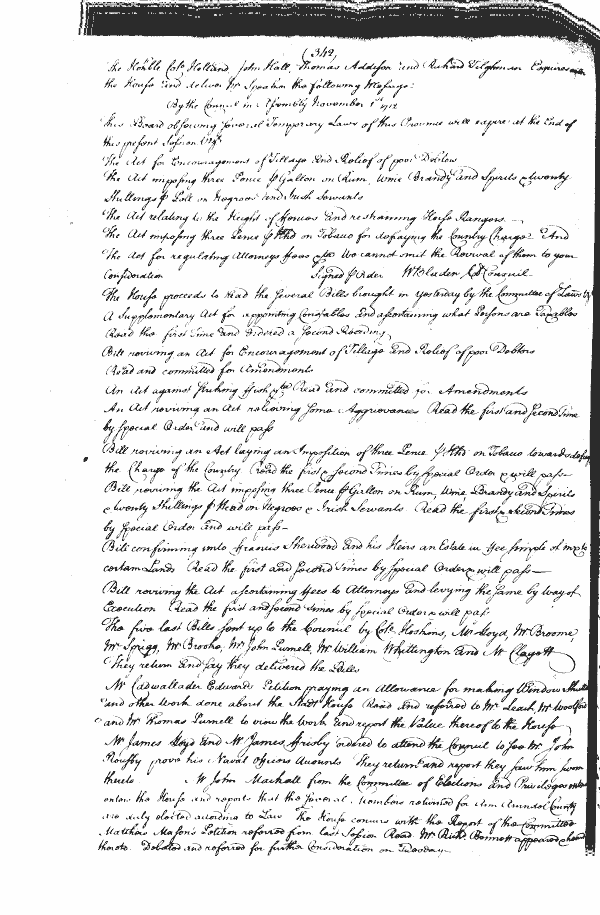 (342)
The Honble Colo Holland John Hall, Thomas Addison and Richard Tilghman Esquires enter
the House and deliver Mr Speaker the following Message:
By the Council in Assembly November 1st 1712
This Board observing several Temporary Laws of this Province will expire at the End of
this present Session Vizt
The Act for Encouragement of Tillage and Relief of poor Debtors
The Act imposing three Pence p Gallon on Rum, Wine Brandy and Spirits & twenty
Shillings p Poll on Negroes and Irish Servants
The Act relating to the Height of Fences and restraining Horse Rangers.
The Act imposing three Pence p Hhd on Tobacco for defraying the Country Charge And
The Act for regulating Attorneys Fees &c We cannot omit the Revival of them to your
Consideration Signed p Order W Bladen Cl Council
The House proceeds to read the several Bills brought in yesterday by the Committee of Laws Vizt
A Supplementary Act for appointing Constables and ascertaining what Persons are Taxables
Read the first Time and Ordered a second Reading
Bill reviving an Act for Encouragement of Tillage and Relief of poor Debtors
Read and committed for Amendments
An Act against Striking Fish &c Read and committed for Amendments
An Act reviving an Act relieving some Aggrievances Read the first and second Time
by Special Order and will pass
Bill reviving an Act laying an Imposition of three Pence p Hhd on Tobacco towards defray
the Charge of the Country read the first & second Times by Special Order & will pass
Bill reviving the Act imposing three Pence p Gallon on Rum, Wine, Brandy and Spirits
& twenty Shillings p Head on Negroes & Irish Servants Read the first & second Times
by Special Order and will pass
Bill confirming unto Francis Sherwood and his Heirs an Estate in Fee simple of in & to
certain Lands Read the first and second Times by Special Order & will pass
Bill reviving the Act ascertaining Fees to Attorneys and levying the same by way of
Execution Read the first and second Times by Special Order & will pass
The five last Bills sent up to the Council by Colo Hoskins, Mr Lloyd, Mr Broome
Mr Sprigg, Mr Brooke, Mr John Purnell, Mr William Whittington and Mr Clagett
They return and say they delivered the Bills
Mr Cadwallader Edwards Petition praying an Allowance for making Window Shutters
and other Work done about the Stadt House Read and referred to Mr Leach, Mr Woolford
and Mr Thomas Purnell to view the Work and report the Value thereof to the House
Mr James Lloyd and Mr James Frisby ordered to attend the Council to see Mr John
Rousby prove his Naval Officers Accounts They return and report they saw him sworn
thereto Mr John Mackall from the Committee of Elections and Privileges
enters the House and reports that the several Members returned for Ann Arundel County
are duly elected according to Law The House concurs with the Report of the Committee
Matthew Mason's Petition referred from last Session Read Mr Richd Bennett appeared & heard
thereto Debated and referred for further Consideration on Tuesday